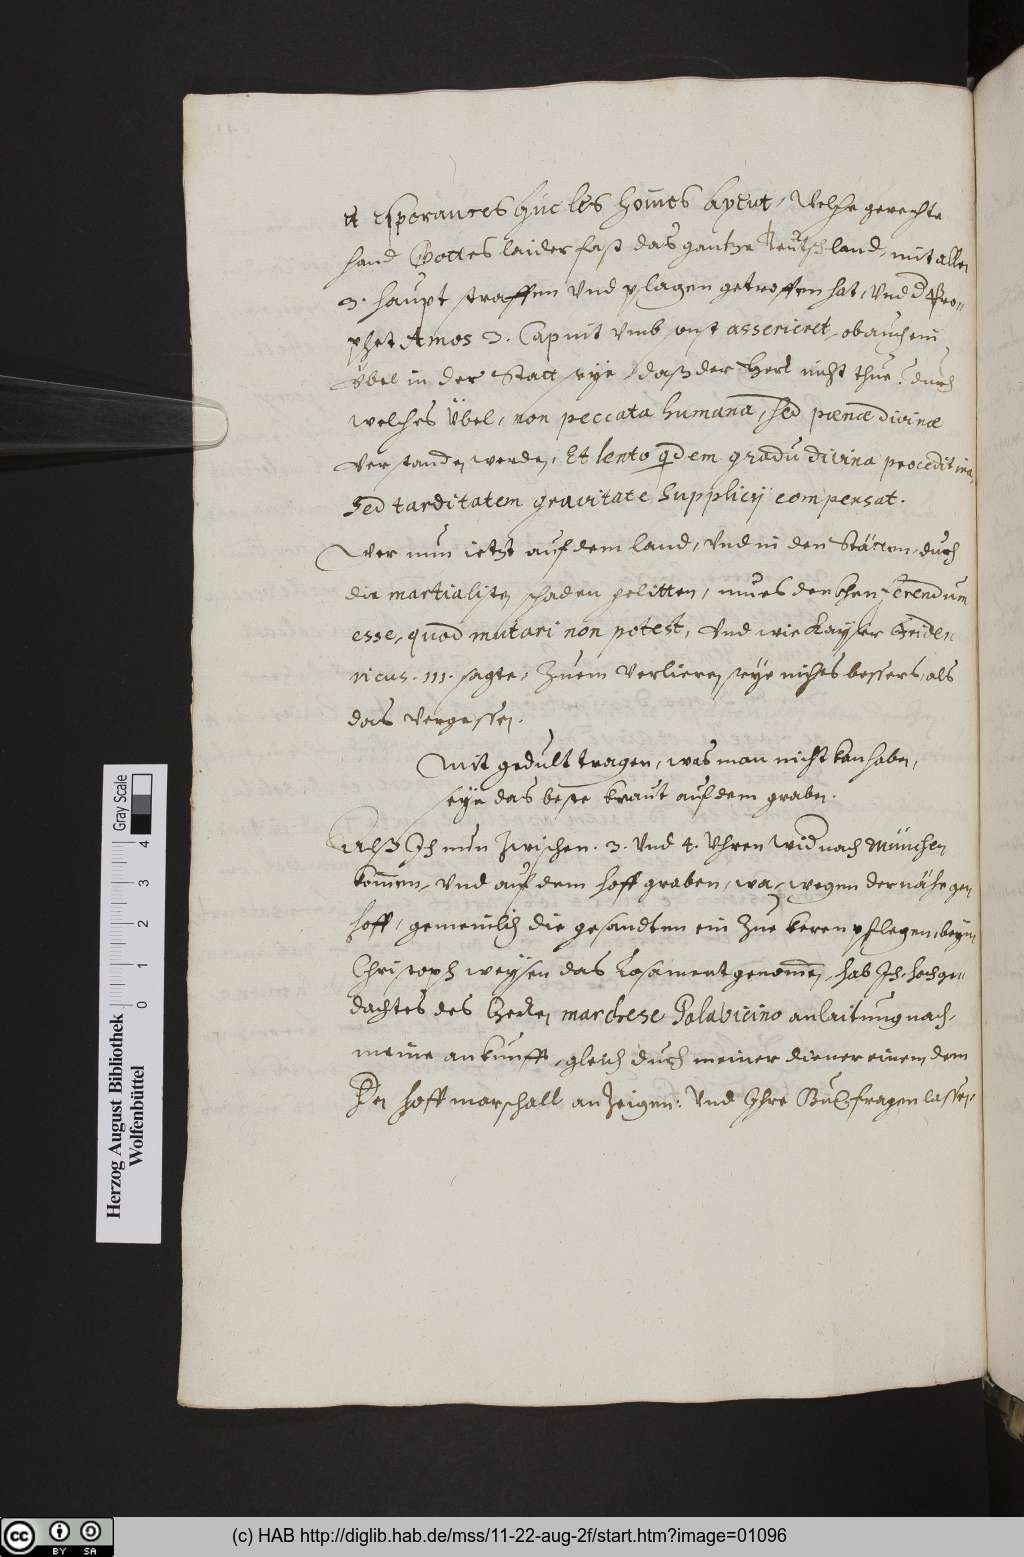 et Temporances huc les homines aperut, Welche gerechte
hand Gottes laider fast das gantze Teutschland, mit allen
3. haupt straffen Vnd plagen getroffen hat, Vnd d Pro-
phet Amos 3. Capuit Vmb sonst asserieret, ob auch ein
Übel in der Statt seye, daß der Herr nicht thue? durch
welches Übel, non peccata humana, sed pœnæ divinæ
Verstanden werden, Et lento qdem gradu divina procedit ira,
Sed tarditatem gravitate Supplicij compensat.
Wer nun ietzt auf dem land, Vnd in den Stätten, durch
die martialisten schaden gelitten, mues dencken, ferendum
esse, quod mutari non potest, Vnd wie Kayser Friden
ricus. III. sagte, Zuem Verlieren seye nichts bessers, als
das Vergessen.
Mit gedult tragen, was man nicht kan haben,
seye das beste kraut auf dem graben.
Alß Ich nun Zwischen. 3. Vnd 4. Vhren wid nach München
kommen, Vnd auf dem hoff graben, wa, wegen der nähe gen
hoff, gemeinlich die gesandten ein Zue keren pflegen, beym
Christoph weysen das Losament genommen, hab Ich, hochge-
dachtes des Herren marchese Palavicino anlaitung nach,
meine ankunfft, gleich durch meiner diener einen dem
Hn hoffmarschall anZeigen: Vnd Ihre fragen lassen,
Herzog August Bibliothek
Wolfenbüttel
Gray Scale
0 1 2 3 4
(c) HAB http://diglib.hab.de/mss/11-22-aug-2f/start.htm?image=01096
cc BY SA